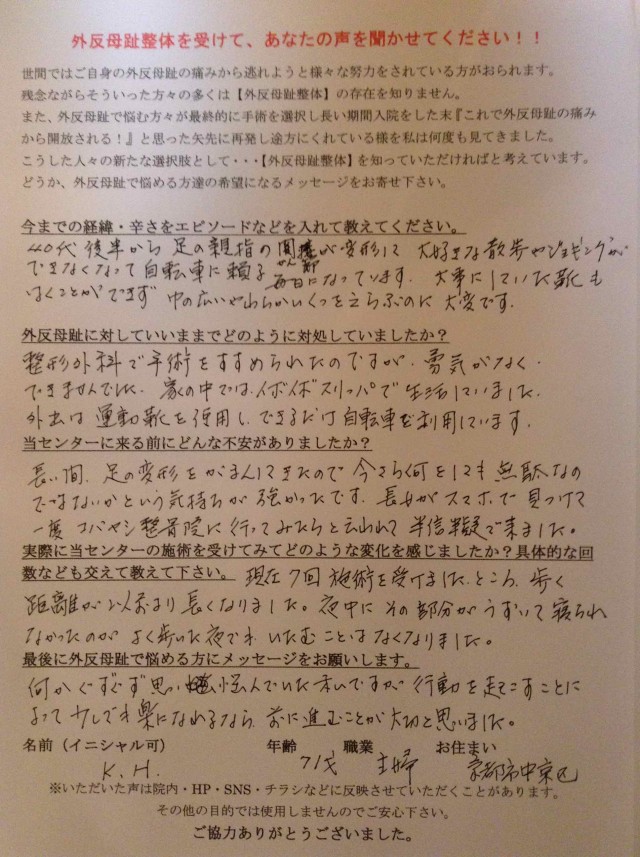 外反母趾整体を受けて、あなたの声を聞かせてください！！
世間ではご自身の外反母趾の痛みから逃れようと様々な努力をされている方がおられます。
残念ながらそういった方々の多くは【外反母趾整体】の存在を知りません。
また、外反母趾で悩む方々が最終的に手術を選択し長い期間入院をした末『これで外反母趾の痛み
から開放される！』と思った矢先に再発し途方にくれている様を私は何度も見てきました。
こうした人々の新たな選択肢として・・・【外反母趾整体】を知っていただければと考えています。
どうか、外反母趾で悩める方達の希望になるメッセージをお寄せ下さい。
今までの経緯・辛さをエピソードなどを入れて教えてください。
40代後半から足の親指の関節が変形して 大好きな散歩やジョギングが
かんせつ
できなくなって自転車に頼る毎日になっています. 大事にしていた靴も
はくことができず 中の広いやわらかいくつをえらぶのに大変です.
外反母趾に対していいままでどのように対処していましたか？
整形外科で手術をすすめられたのですが. 勇気がなく.
できませんでした. 家の中では.イボイボスリッパで生活していました.
外出は運動靴を使用し.できるだけ自転車を利用しています.
当センターに来る前にどんな不安がありましたか？
長い間. 足の変形をがまんしてきたので 今さら何をしても無駄なの
ではないかという気持ちが強かったです. 長女がスマホで見つけて
一度コバヤシ整骨院に行ってみたらと云われて半信半疑で来ました。
実際に当センターの施術を受けてみてどのような変化を感じましたか？具体的な回
数なども交えて教えて下さい。 現在7回施術を受けましたところ. 歩く
距離が以前より長くなりました。夜中にその部分がうずいて寝られ
なかったのが よく歩いた夜でも いたむことはなくなりました。
最後に外反母趾で悩める方にメッセージをお願いします。
何かぐずぐず思い悩んでいた私ですが 行動を起こすことに
よって少しでも楽になれるなら. 前に進むことが大切と思いました。
名前（イニシャル可） 年齢 職業 お住まい
K.H. 71才 主婦 京都市中京区
※いただいた声は院内・HP・SNS・チラシなどに反映させていただくことがあります。
その他の目的では使用しませんのでご安心下さい。
ご協力ありがとうございました。